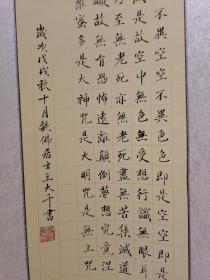 不異空空不異色色即是空
減是故空中無色無受想行識無眼耳
乃至無老死亦無老死盡無苦集滅道
礙故無有恐怖遠離顛倒夢想究竟涅
羅蜜多是大神咒是大明咒是無上咒
歲次戊戌秋十月敬佛居士王大千書